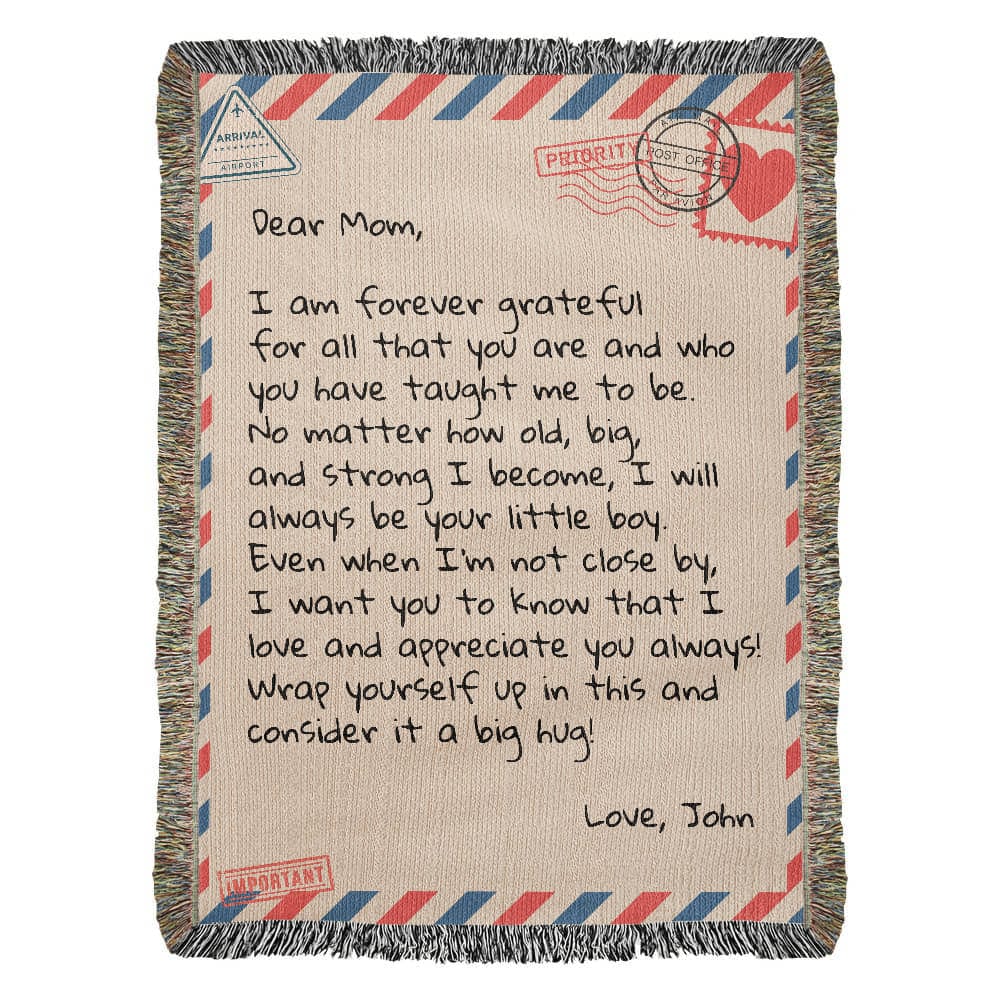 ARRIVAL
AIRPORT
PRIORITY
AIR MAIL
POST OFFICE
PAR AVION
Dear Mom,
I am forever grateful
for all that you are and who
you have taught me to be.
No matter how old, big,
and strong I become, I will
always be your little boy.
Even when I'm not close by,
I want you to know that I
love and appreciate you always!
Wrap yourself up in this and
consider it a big hug!
Love, John
IMPORTANT